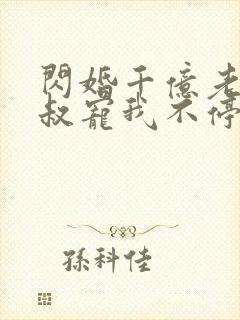 閃婚千億老
叔寵我不停
孫科佳